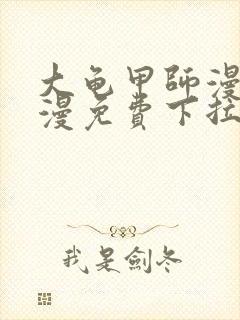 大龟甲師漫
漫免費下拉
我是劍冬